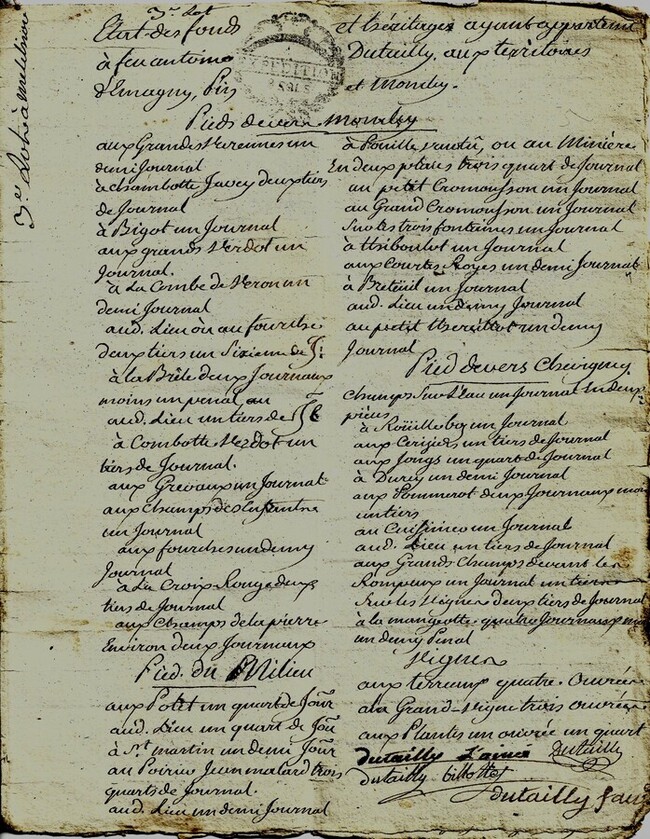 3e Lot
Etat des fonds et héritages ayant appartenu
à feu antoine Dutailly, aux territoires
d'Emagny, Pin et Moncley.
Pied devers Moncley
aux Grandes Varennes un
demi Journal
à Chambotte Javey deux tiers
de Journal
à Bigot un Journal
aux grands Verdot un
Journal.
à La Combe de Veron un
demi Journal
aud. Lieu ou au fourche
deux tiers un Sixieme de J:
à la Brêle deux Journaux
moins un penal, ou
aud. Lieu un tiers de
à Combotte Verdot un
tiers de Journal.
aux Grevaux un Journal
aux Champs des
un Journal
aux fourches un demy
Journal
à La Croix Rouge deux
tiers de Journal
aux Champs de la pierre
Environ deux Journaux
Pied du Milieu
aux Potet un quart de Jour
aud. Lieu un quart de Jour
à St martin un demi Jour
au Poirier Jean malard trois
quarts de Journal
aud. Lieu un demi Journal
à Pouille ou au Miniere
En deux places trois quart de Journal
au petit Cromousson un Journal
au Grand Cromousson un Journal
Sur les trois fontaines un Journal
à Thiboulot un Journal
aux Courtes Royes un demi Journal
à Breteüil un Journal
aud. Lieu un demy Journal
au petit un demy
Journal
Pied devers Chevigney
Champs Sur L'eau un Journal En deux
pièces
à un Journal
aux Cerisiers, un tiers de Journal
aux Jongs un quart de Journal
à Durey un demi Journal
aux Pommerot deux Journaux moins
un tiers
au un Journal
aud. Lieu un tiers de Journal
aux Grands Champs devant les
Rompeux un Journal un tiers
Sur les Vignes deux tiers de Journal
à la mangeotte quatre Journaux moins
un demy Penal
Vignes
aux terreaux quatre Ouvrées
à la Grand Vigne trois ouvrées
aux Plantes un ouvrée un quart
dutailly L'ainé Dutailly
dutailly billottet
dutailly